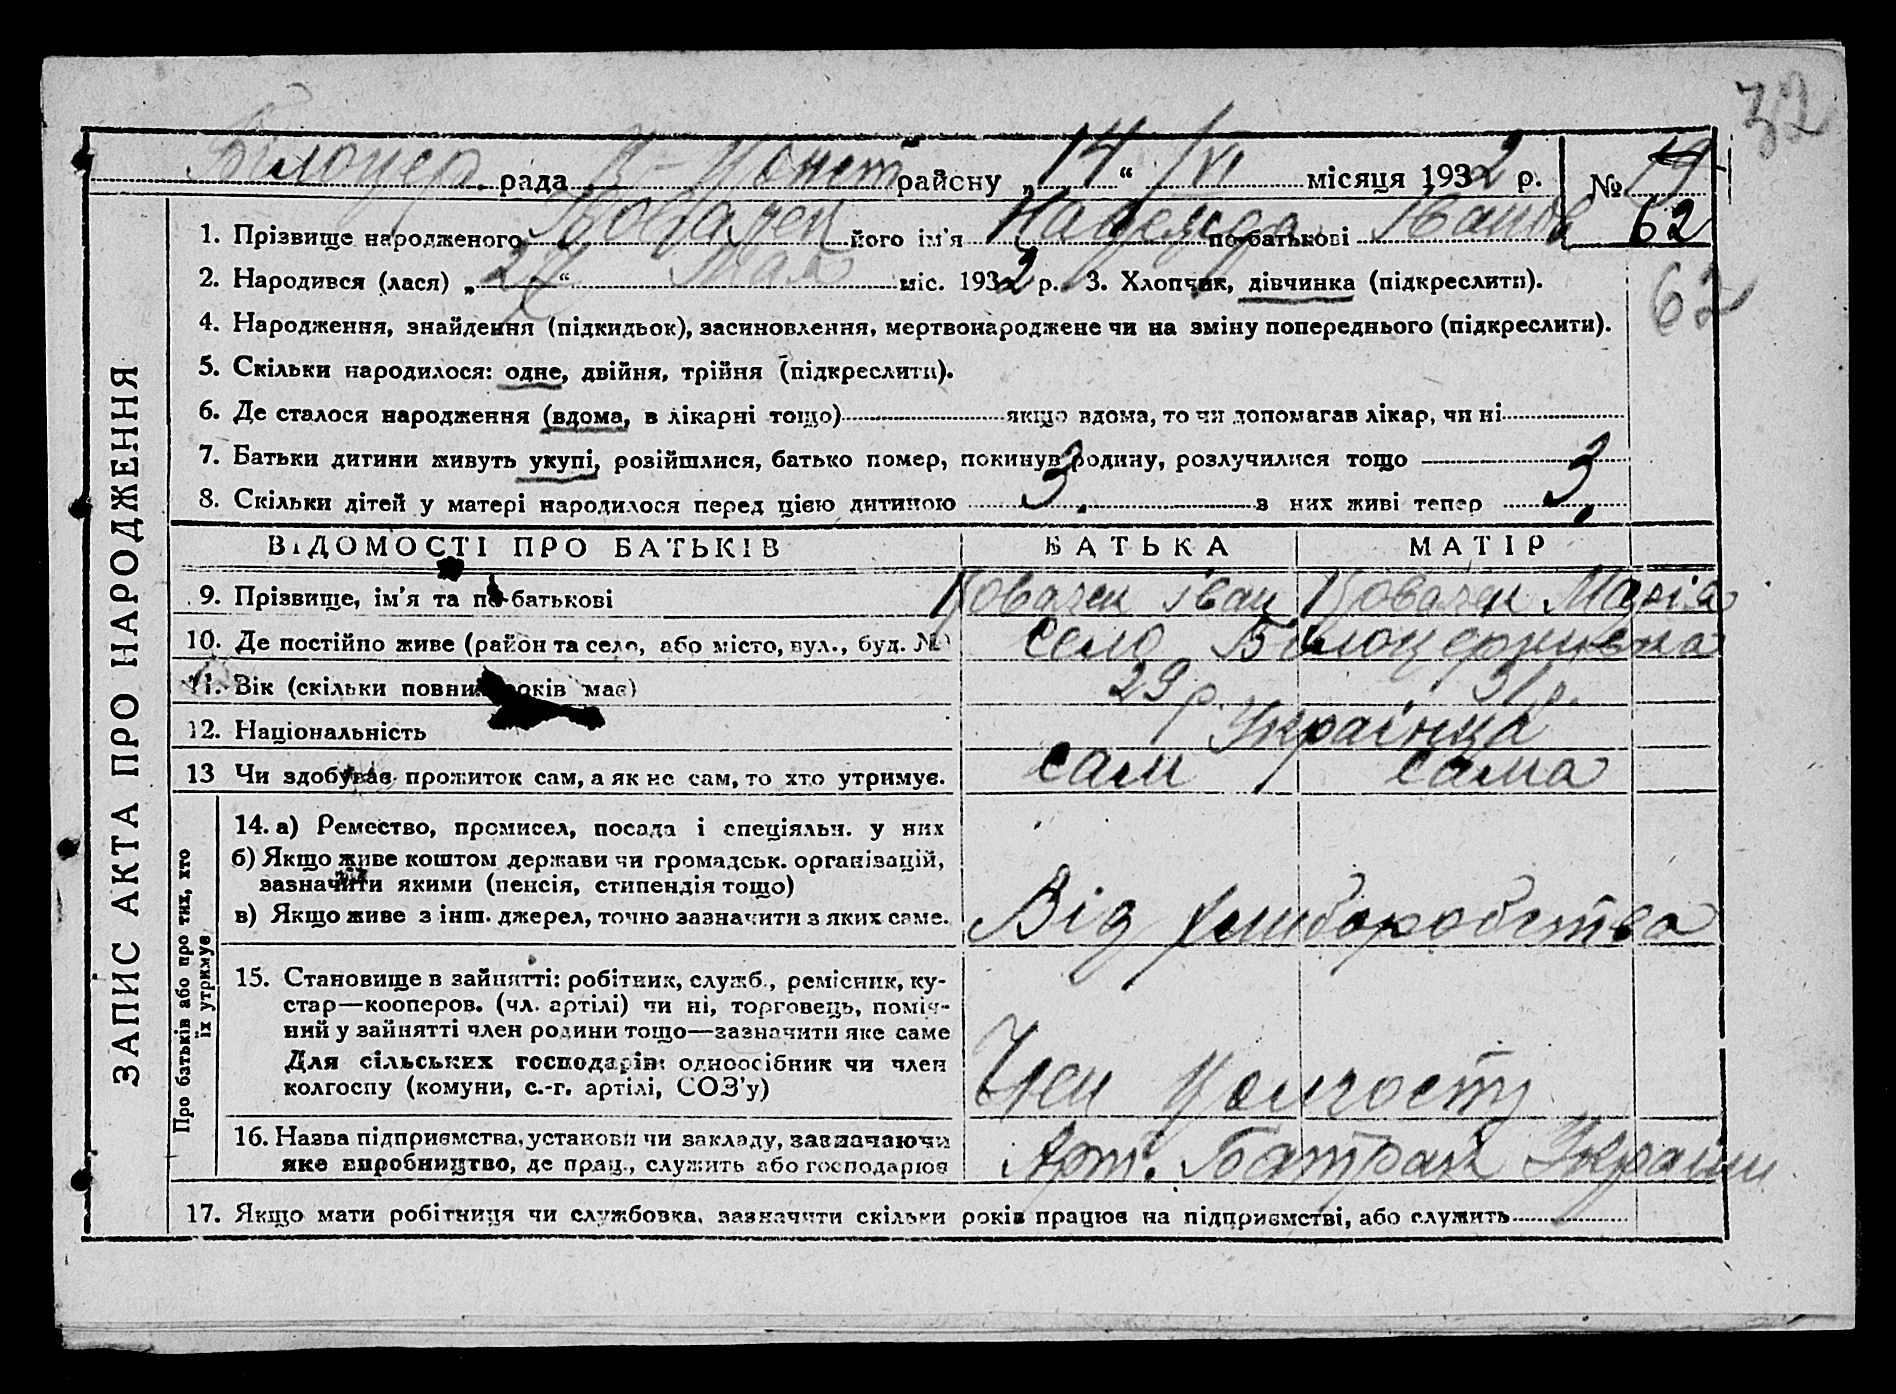 32
Білоцер. рада В-Конст району „14“ /VI місяця 1932 р. № 19
62
1. Прізвище народженого Ковачек його ім'я Надежда по-батькові Іванов
2. Народився (лася) „27“ Мая міс. 1932 р. 3. Хлопчик, дівчинка (підкреслити).
62
4. Народження, знайдення (підкидьок), засиновлення, мертвонароджене чи на зміну попереднього (підкреслити).
5. Скільки народилося: одне, двійня, трійня (підкреслити).
6. Де сталося народження (вдома, в лікарні тощо) якщо вдома, то чи допомагав лікар, чи ні
7. Батьки дитини живуть укупі, розійшлися, батько помер, покинув родину, розлучилися тощо
8. Скільки дітей у матері народилося перед цією дитиною 3 з них живі тепер 3
ВІДОМОСТІ ПРО БАТЬКІВ БАТЬКА МАТІР
9. Прізвище, ім'я та по-батькові Ковачек Іван Ковачек Марія
10. Де постійно живе (район та село, або місто, вул., буд. №) село Білоцерківка
11. Вік (скільки повних років має) 29 р. 31 р.
12. Національність Українца
13 Чи здобуває прожиток сам, а як не сам, то хто утримує. сам сама
14. а) Ремество, промисел, посада і спеціяльн. у них
б) Якщо живе коштом держави чи громадськ. організацій,
зазначити якими (пенсія, стипендія тощо)
в) Якщо живе з інш. джерел, точно зазначити з яких саме. Від хлиборобства
15. Становище в зайнятті: робітник, служб., ремісник, ку-
стар—кооперов. (чл. артілі) чи ні, торговець, поміч-
ний у зайнятті член родини тощо—зазначити яке саме
Для сільських господарів: одноосібник чи член
колгоспу (комуни, с.-г. артілі, СОЗ'у) Член
16. Назва підприємства, установи чи закладу, зазначаючи
яке виробництво, де прац., служить або господарює Арт. Батрак України
17. Якщо мати робітниця чи службовка, зазначити скільки років працює на підприємстві, або служить
ЗАПИС АКТА ПРО НАРОДЖЕННЯ
Про батьків або про тих, хто
їх утримує